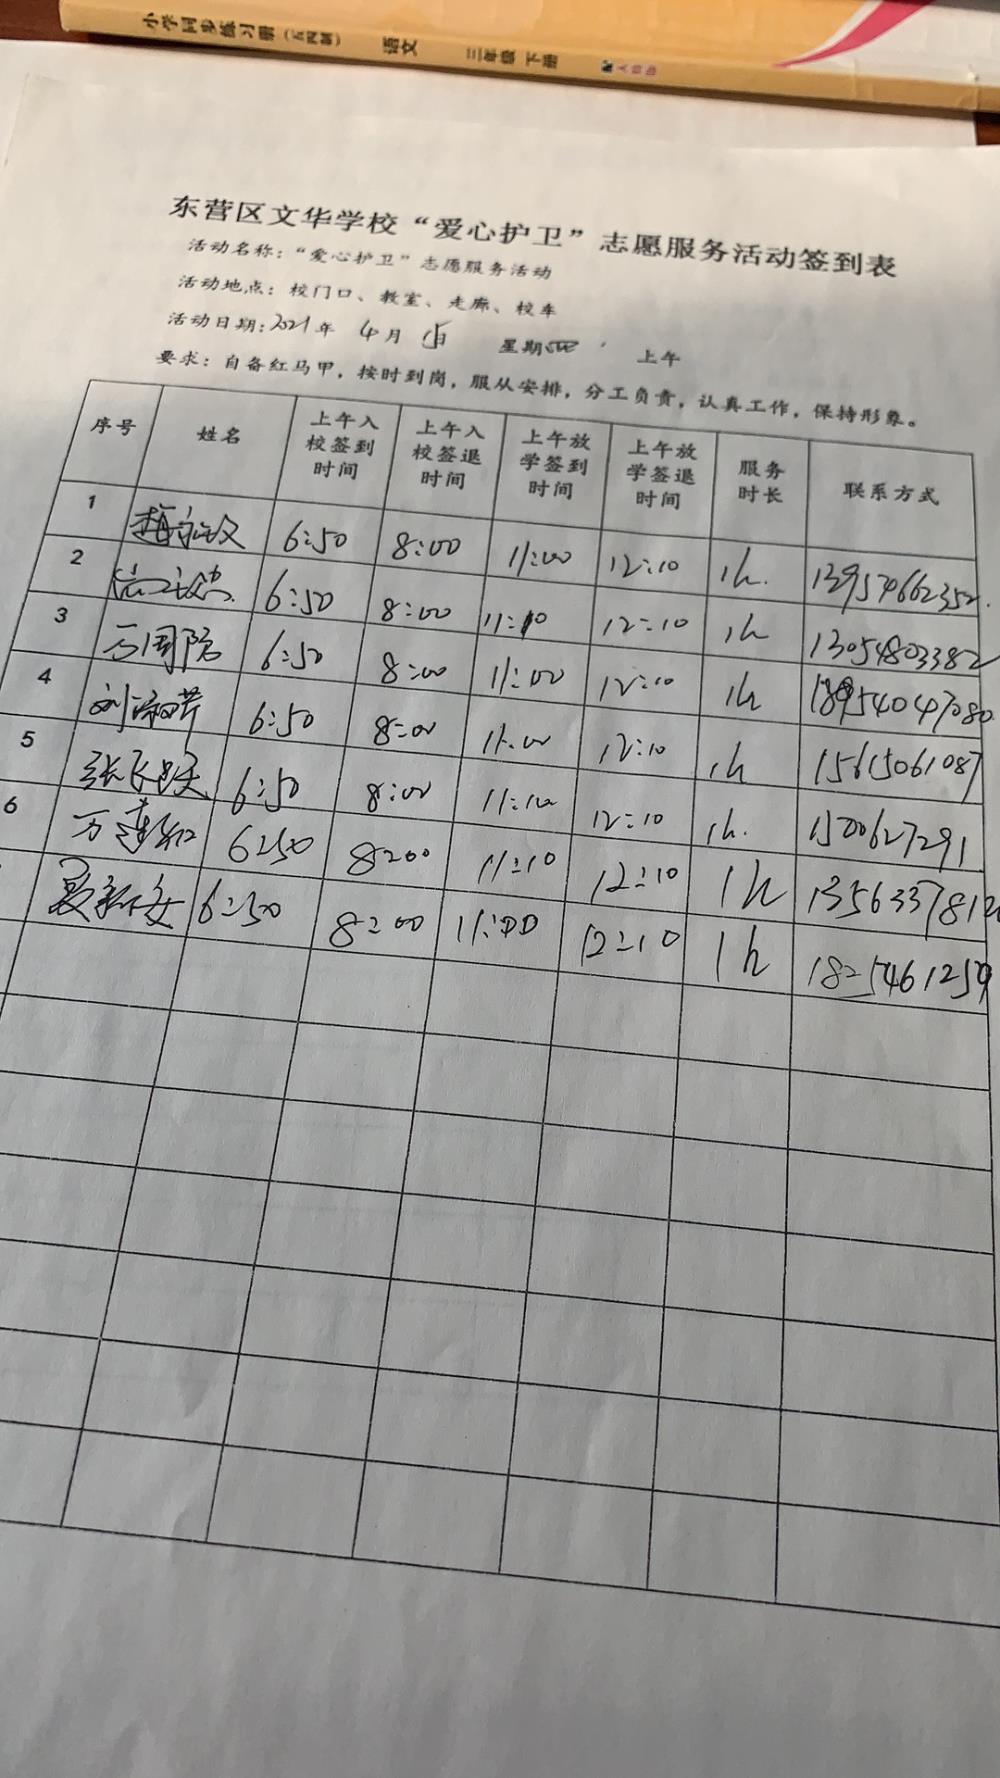 小学同步练习册（五四制） 语文 三年级 下册 配人教版
东营区文华学校“爱心护卫”志愿服务活动签到表
活动名称：“爱心护卫”志愿服务活动
活动地点：校门口、教室、走廊、校车
活动日期：2021年 4月 15日 星期四 上午
要求：自备红马甲，按时到岗，服从安排，分工负责，认真工作，保持形象。
序号 姓名 上午入校签到时间 上午入校签退时间 上午放学签到时间 上午放学签退时间 服务时长 联系方式
1 6:50 8:00 11:00 12:10 1h. 13954662352
2 6:50 8:00 11:10 12:10 1h 13054803382
3 万国院 6:50 8:00 11:00 12:10 1h 18954047080
4 刘淑芹 6:50 8:00 11:00 12:10 1h 15615061087
5 张飞跃 6:50 8:00 11:10 12:10 1h. 1500627291
6 万莲红 6:50 8:00 11:10 12:10 1h
6:50 8:00 11:00 12:10 1h